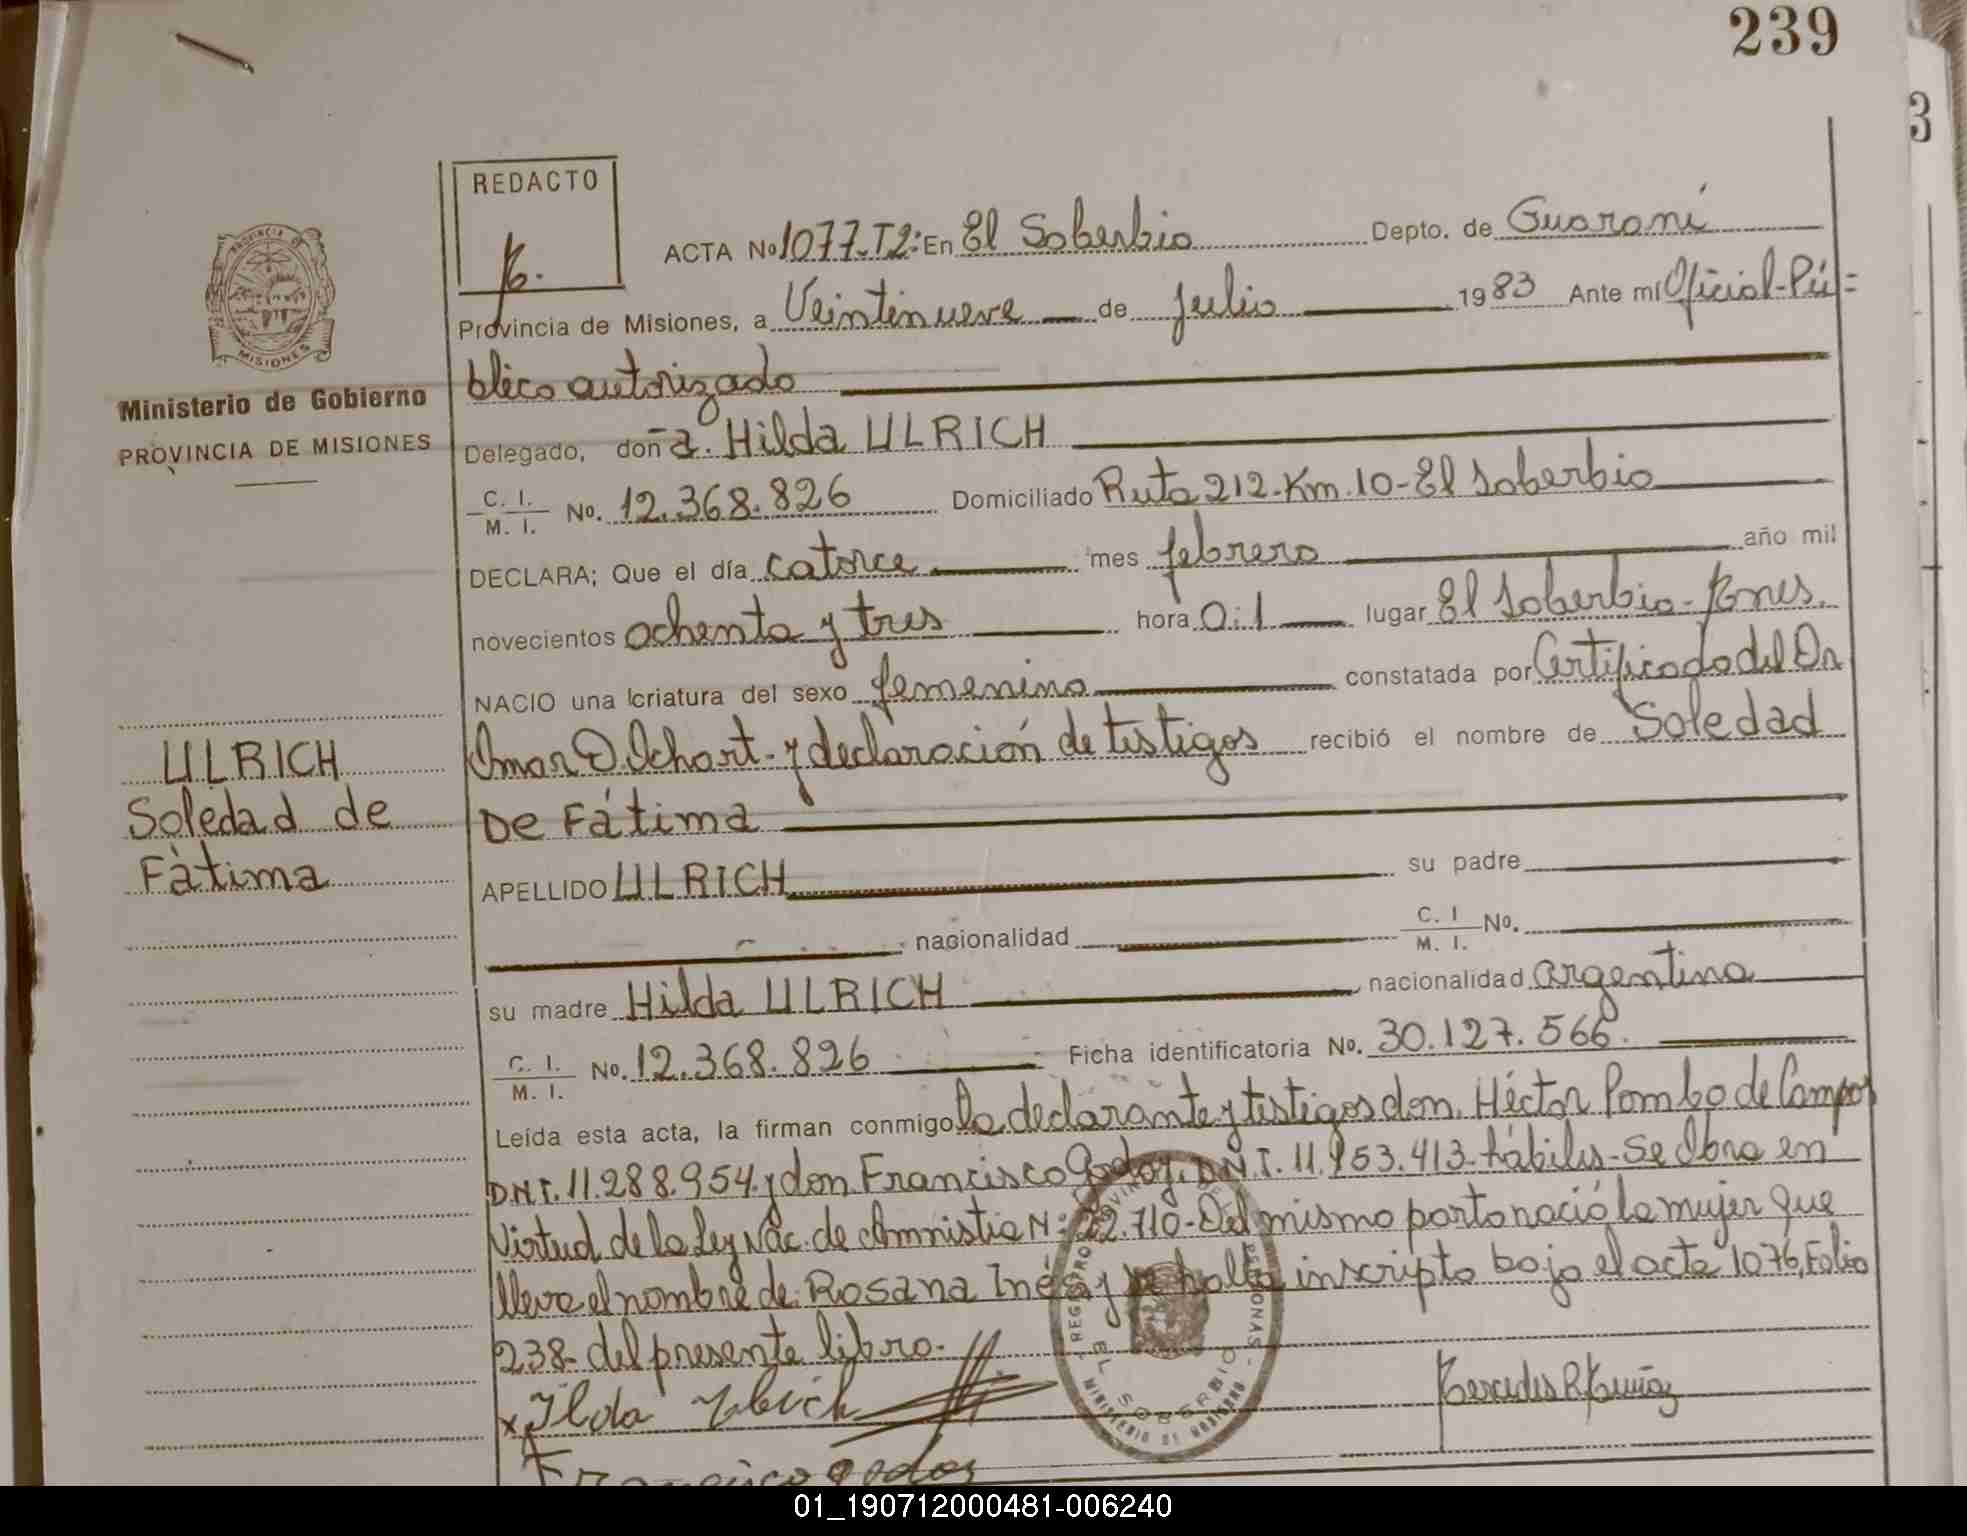 239
3
REDACTO
ACTA No 1077-T2: En El Soberbio Depto. de Guaraní
Provincia de Misiones, a Veintinueve de julio 1983 Ante mí Oficial-Pú=
blico autorizado
Delegado, doña. Hilda ULRICH
C. I. / M. I. No. 12.368.826 Domiciliado Ruta 212-Km.10-El Soberbio
DECLARA; Que el día catorce mes febrero año mil
novecientos ochenta y tres hora 0:1 lugar El Soberbio-Mnes.
NACIO una criatura del sexo femenino constatada por Certificado del Dr
Omar D. Ochart-y declaración de testigos recibió el nombre de Soledad
De Fátima
APELLIDO ULRICH su padre
nacionalidad C. I / M. I. No.
su madre Hilda ULRICH nacionalidad argentina
C. I. / M. I. No. 12.368.826 Ficha identificatoria No. 30.127.566.
Leída esta acta, la firman conmigo la declarante y testigos don. Héctor Pombo de Campos
D.N.I. 11.288.954. y don Francisco Godoy. D.N.I. 11.953.413-hábiles-Se Obra en
Virtud de la Ley Nac. de Amnistia N: 22.710-Del mismo parto nació la mujer que
lleva el nombre de: Rosana Inés y se halla inscripto bajo el acta 1076, Folio
238-del presente libro.
x Ilda Ulrich
Mercedes R. Muñoz
Francisco Godoy
PROVINCIA DE
MISIONES
Ministerio de Gobierno
PROVINCIA DE MISIONES
ULRICH
Soledad de
Fàtima
EL SOBERBIO
MINISTERIO DE GOBIERNO
01_190712000481-006240